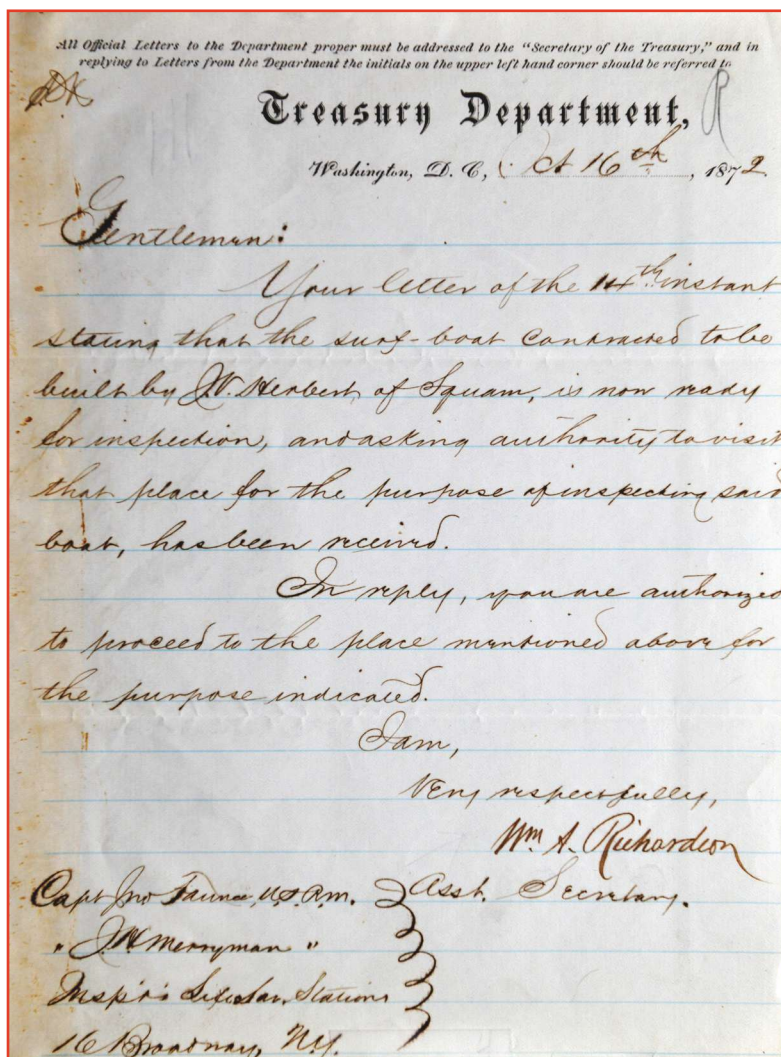 All Official Letters to the Department proper must be addressed to the “Secretary of the Treasury,” and in
replying to Letters from the Department the initials on the upper left hand corner should be referred to
Treasury Department,
Washington, D. C., Oct 16th, 1872
Gentlemen:
Your letter of the 14th instant
stating that the surf-boat contracted to be
built by J.W. Herbert of Squam, is now ready
for inspection, and asking authority to visit
that place for the purpose of inspecting said
boat, has been received.
In reply, you are authorized
to proceed to the place mentioned above for
the purpose indicated.
I am,
Very respectfully,
Wm A. Richardson
Asst. Secretary.
Capt Jno Faunce, U.S.R.M.
" J.H. Merryman "
Insp'r's Life Sav. Stations
16 Broadway, N.Y.